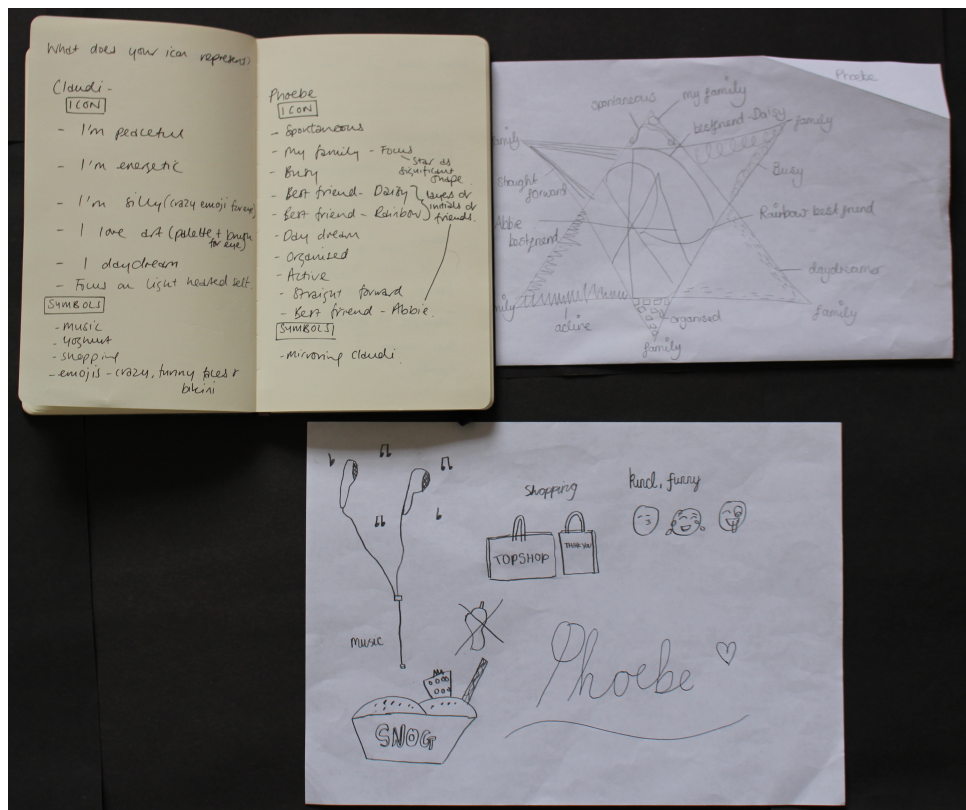 What does your icon represent?
Claudi -
ICON
- I'm peaceful
- I'm energetic
- I'm silly (crazy emoji for eye)
- I love art (palette + brush for eye)
- I daydream
- Focus on light hearted self.
SYMBOLS
- music
- yoghurt
- shopping
- emojis - crazy, funny faces &
bikini
Phoebe
ICON
- Spontaneous
- My family - Focus
- Star as
significant
shape.
- Busy
- Best friend - Daisy
- Best friend - Rainbow
initials of
friends.
- Day dream
- Organised
- Active
- Straight forward
- Best friend - Abbie.
SYMBOLS
- Mirroring Claudi.
Phoebe
spontaneous
my family
bestfriend - Daisy
family
family
Busy
straight
forward
Rainbow best friend
Abbie
bestfriend
daydreamer
family
active
organised
family
mily
Shopping
kind, funny
TOPSHOP
THANK YOU
music
Phoebe
SNOG